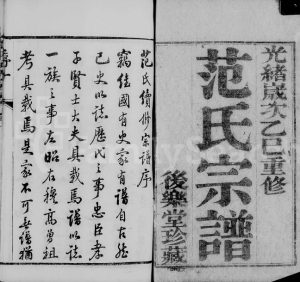 光緒歲次乙巳重修
范氏宗譜
後樂堂珍藏
范氏續修宗譜序
竊維國有史家有譜自古然
已史以誌歷代之事忠臣孝
子賢士大夫具載焉譜以誌
一族之事左昭右穆高曾祖
考具載焉是家不可無譜猶